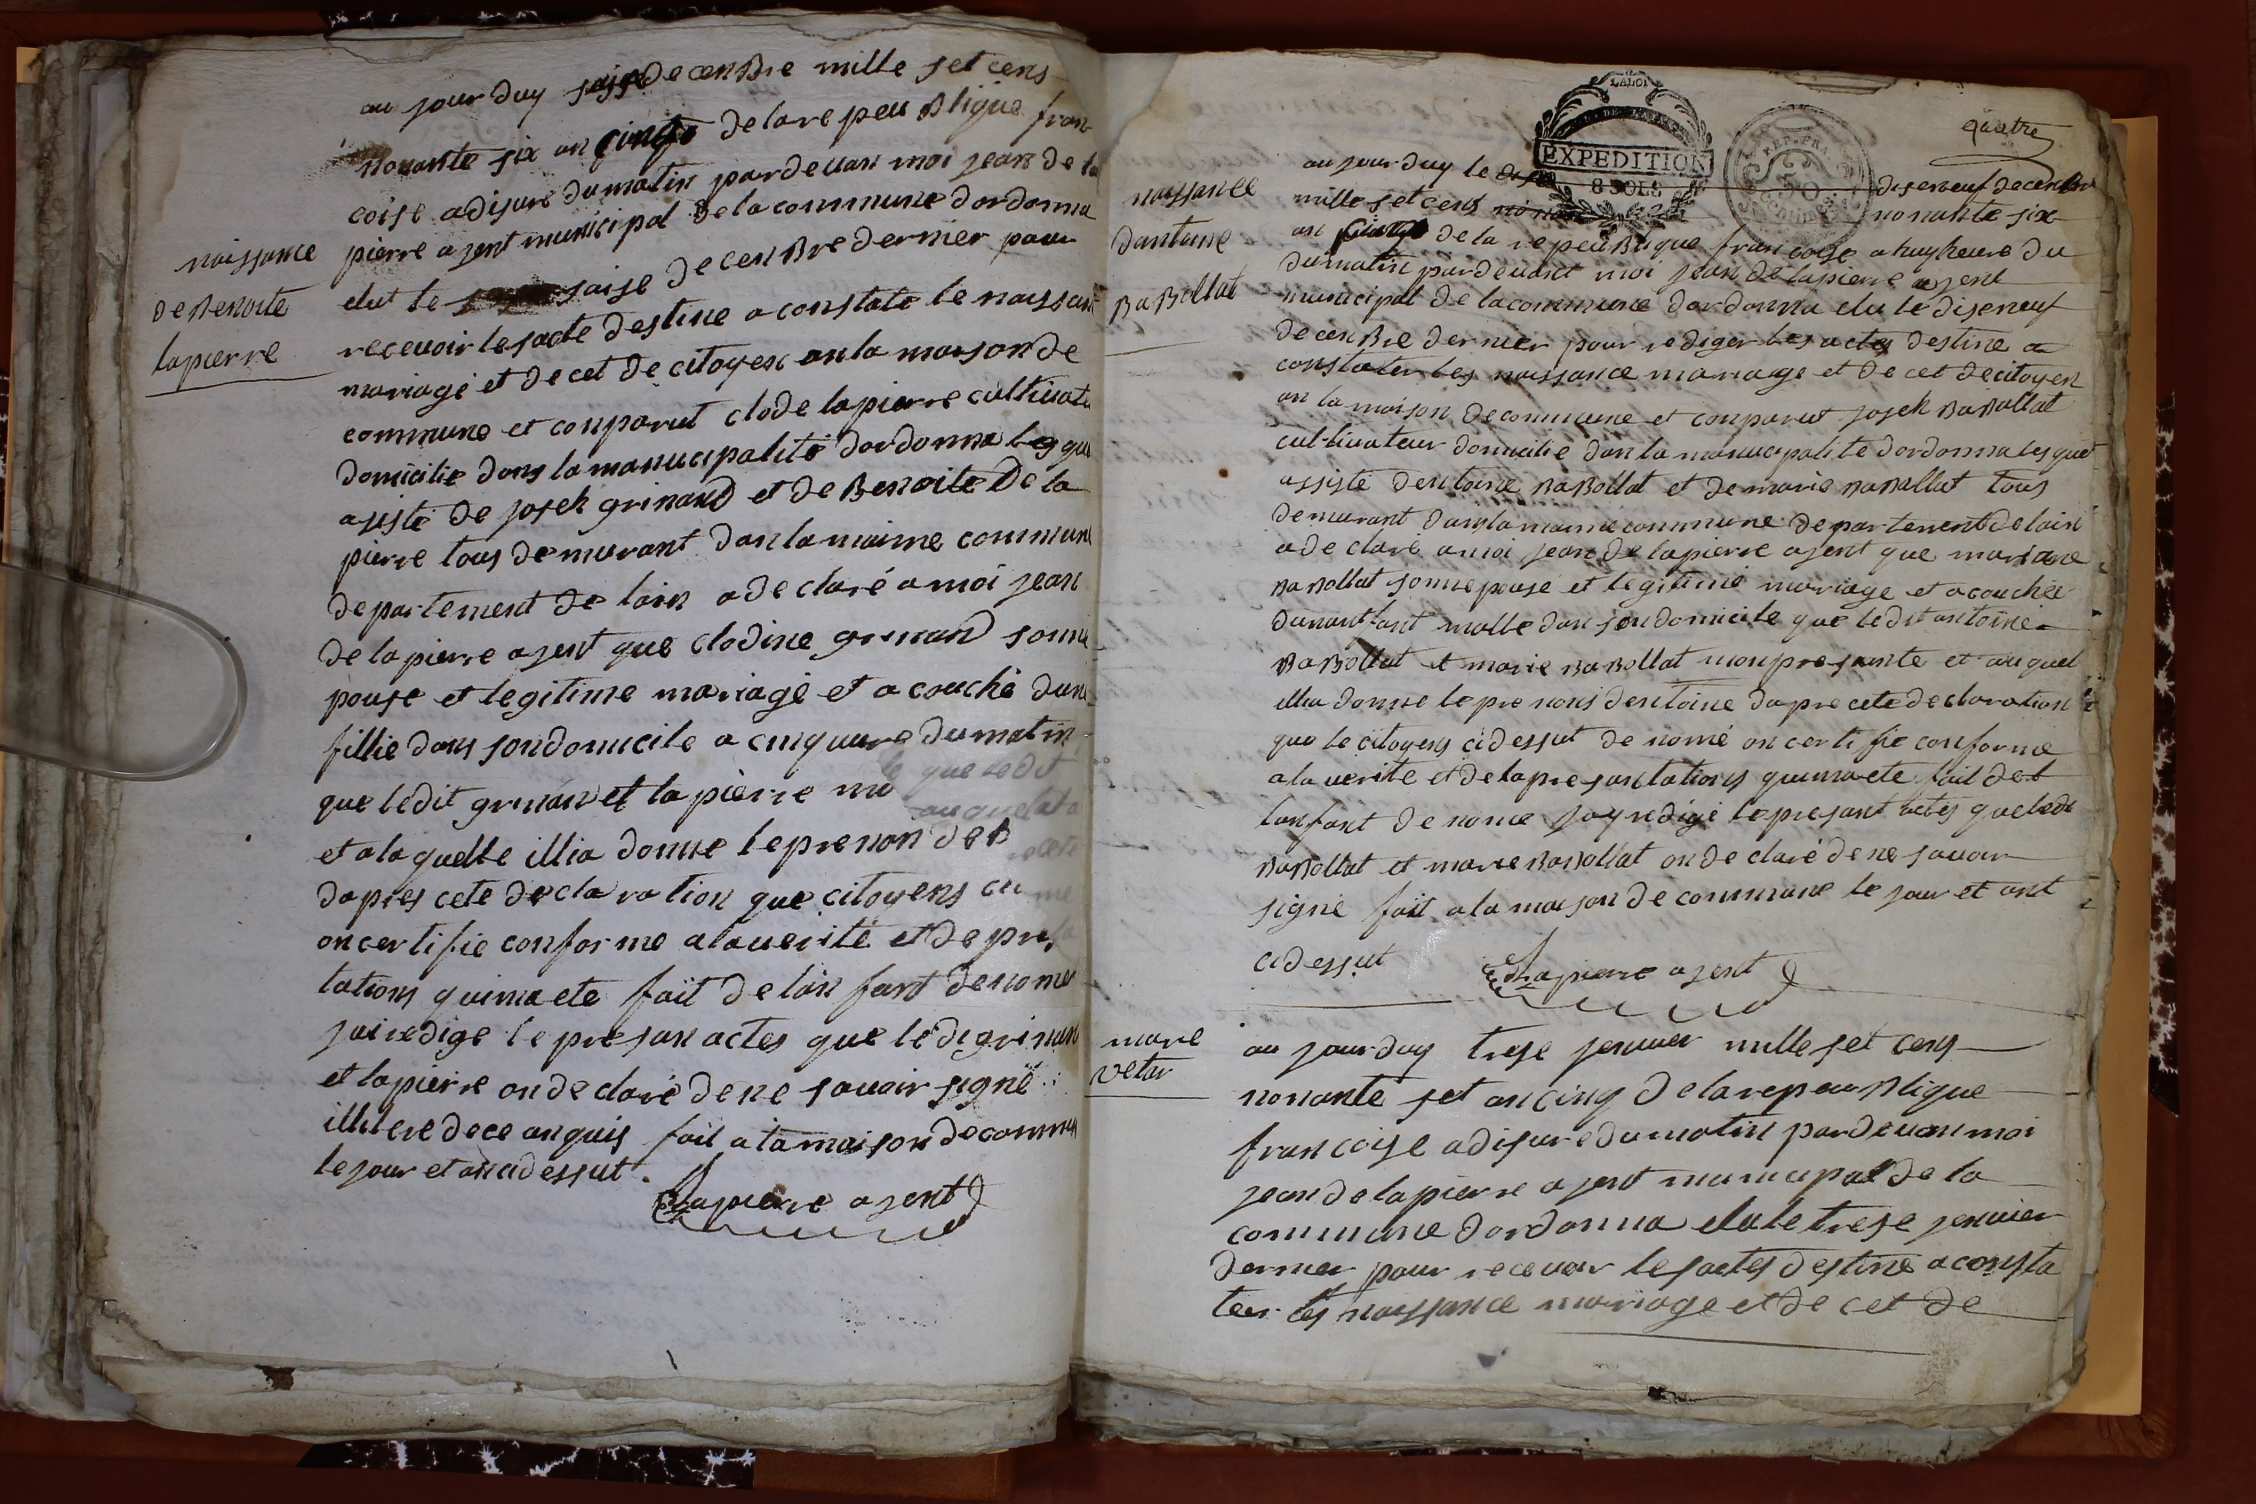 au jour duy saise decenbre mille set cens
nonante six an cinqe de la re peu bligue fran
coise a disure du matin par devan moi jean de la
pierre agent municipal de la commune dordonna
elut le saise decenbre dernier pour
recevoir les acte destine a constate le naissan
mariage et de cet de citoyen an la maison de
commune et conparut clode lapierre cultivate
domicilie dans la manucipalité dordonna les que
asisté de josek grinand et de Benoite De la
pierre tous demurant dan la maime commune
departement de lain a de claré a moi jean
de lapierre agent que clodine grinand sonne
pouse et legitime mariage et a couché dune
fillie dans son domicile a cinq ure du matin
que ledit grinan et la pierre mo
et a la quelle illia donne le pre non de B
dapres cete declaration que citoyens ci
on certifie conforme a la verité et de pre
tations quima ete fait de lan fant de nome
jai redige le presan actes que le di grinan
et lapierre on de claré de ne savoir signé
illitere de ce anquis fait a la maison de commun
le jour et an ci dessut
Lapierre agent
naissance
de Benoite
lapierre
LA LOI
EXPEDITION
8 SOLS
REP. FRA.
50
centimes
quatre
naissance
dantoine
BaBollat
au jour duy le diseneuf decenbre
mille set cens nonante six
an cinqe de la re peu blique francoise a huy heure du
du matin par devant moi jean de lapierre agent
municipal de la commune dordonna elu le diseneuf
decenbre dernier pour rediger les actes destine a
constater les naissance mariage et de cet de citoyen
an la maison de commune et conparut josek BaBollat
cultivateur domicilie dan la manucipalite dordonna les quel
assisté dentoine BaBollat et de marie BaBollat tous
demurant dans la maime commune departement de lain
a de claré a moi jean de lapierre agent que mariane
BaBollat sonne pouse et legitime mariage et a couchée
dunant fant malle dan son domicile que ledit antoine
BaBollat et marie BaBollat mon presante et auquel
illia donne le pre nons dentoine dapre cete declaration
que le citoyens ci dessut de nomé on certifie conforme
a la verite et de la pre santations quima ete fait de l
lanfant de nome jay redigé le presant actes que ledi
BaBollat et marie BaBollat on de claré de ne savoir
signé fait a la maison de commune le jour et ant
ci dessut
Lapierre agent
marie
vetar
au jour duy trese jenvier mille set cens
nonante set an cinq de la re peu blique
francoise a disure du matin par devan moi
jean de lapierre agent manucipal de la
commune dordonna elu le trese jenvier
dernier pour recevoir les actes destine a consta
ter les naissance mariage et de cet de